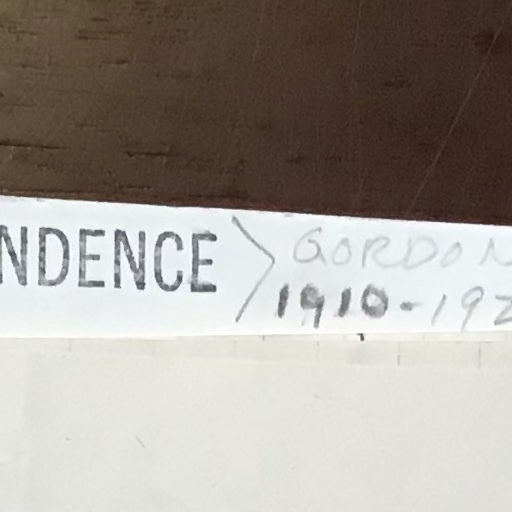 NDENCE
GORDON
1910-192